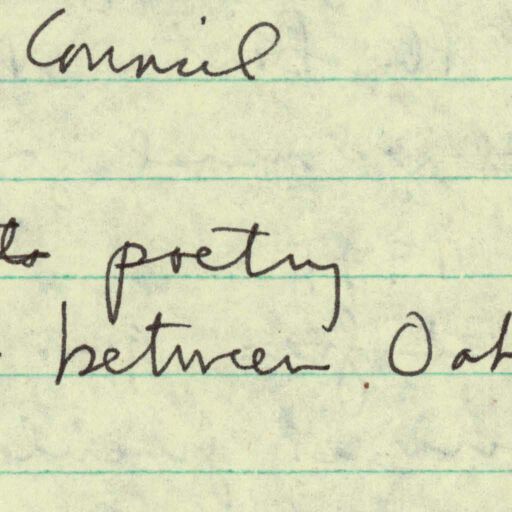 Council
poetry
between Oak